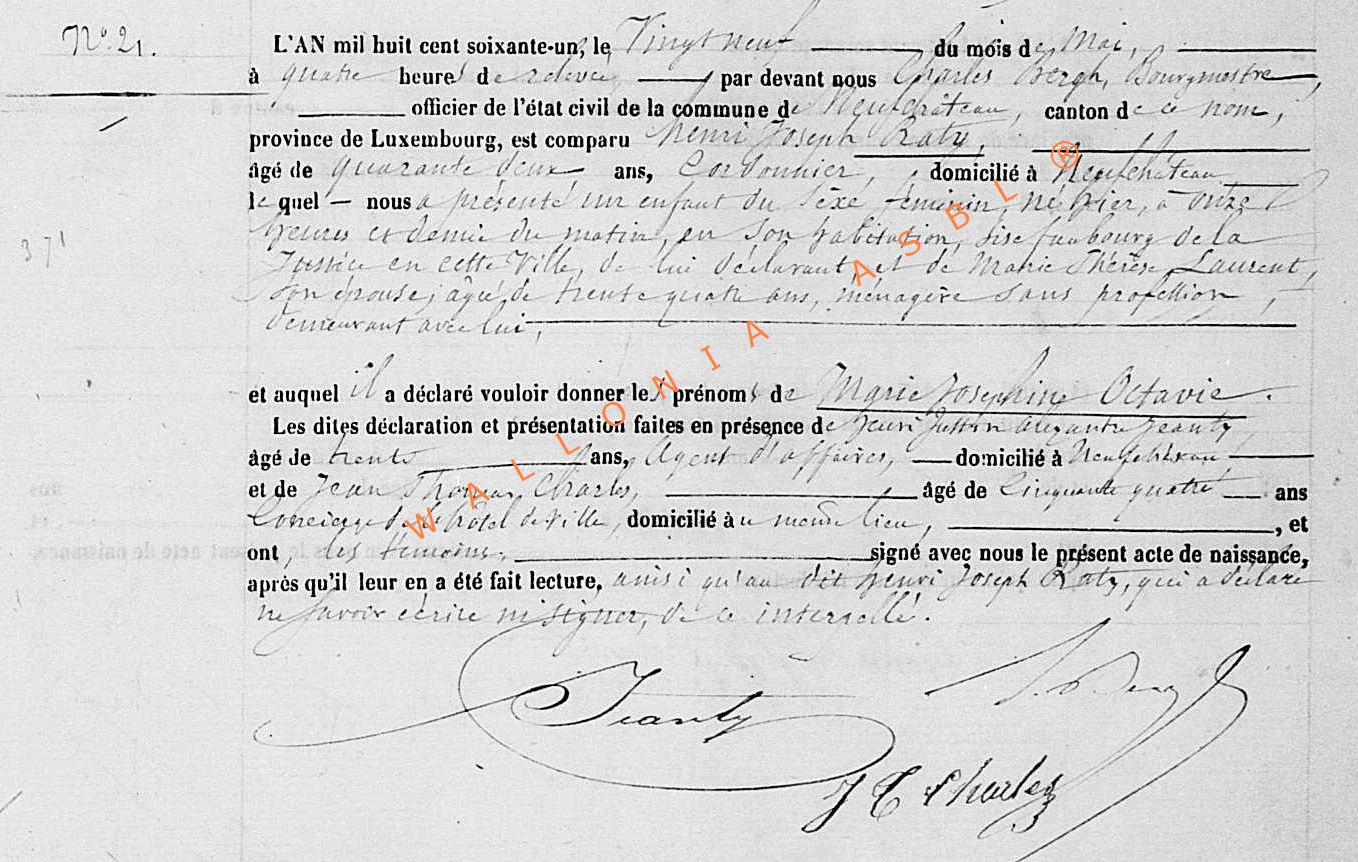 N° 21.
L'AN mil huit cent soixante-un, le Vingt neuf du mois de Mai,
à quatre heures de relevée, par devant nous Charles Bergh, Bourgmestre,
officier de l'état civil de la commune de Neufchâteau, canton de ce nom,
province de Luxembourg, est comparu Henri Joseph Raty,
âgé de quarante deux ans, Cordonnier, domicilié à Neufchâteau
le quel nous a présenté un enfant du sexe féminin, né hier, à onze
heures et demie du matin, en son habitation, sise faubourg de la
Justice en cette Ville, de lui déclarant, et de Marie Thérèse Laurent,
son épouse, âgée de trente quatre ans, ménagère sans profession,
demeurant avec lui,
et auquel il a déclaré vouloir donner les prénoms de Marie Josephine Octavie.
Les dites déclaration et présentation faites en présence de Henri Justin Alexandre Jeanty,
âgé de trente ans, Agent d'affaires, domicilié à Neufchâteau
et de Jean Thomas Charles, âgé de Cinquante quatre ans
Concierge de l'hôtel de Ville, domicilié à même lieu, et
ont, les témoins, signé avec nous le présent acte de naissance,
après qu'il leur en a été fait lecture, ainsi qu'au dit Henri Joseph Raty, qui a déclaré
ne savoir écrire ni signer, de ce interpellé.
Jeanty
J T Charles
371
WALLONIA ASBL ®